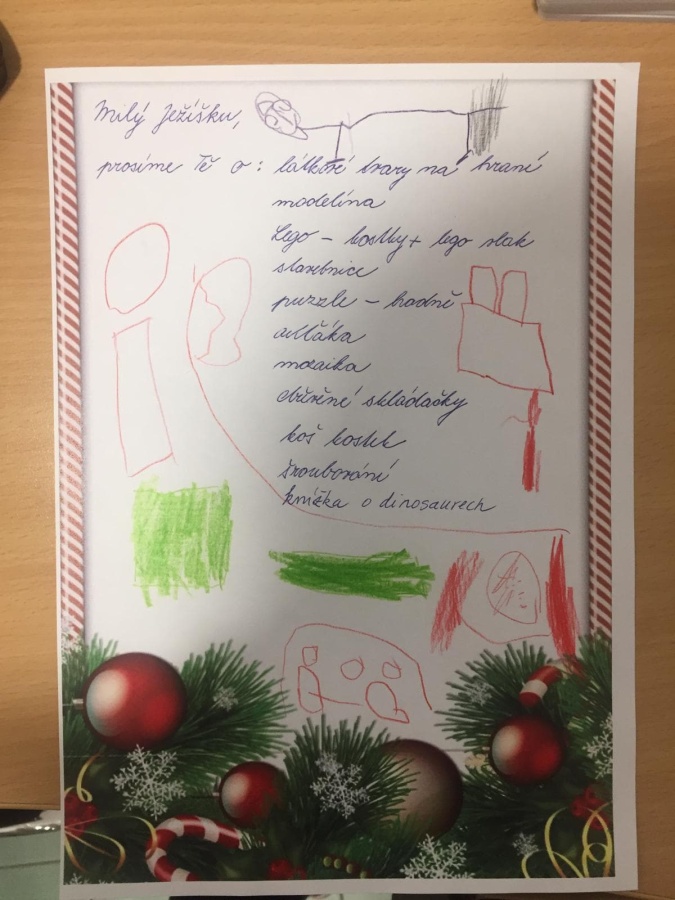 Milý Ježíšku,
prosíme Tě o: látkové tvary na hraní
modelína
Lego - kostky + lego vlak
stavebnice
puzzle - hodně
mozaika
dřevěné skládačky
koš kostek
šroubování
knížka o dinosaurech